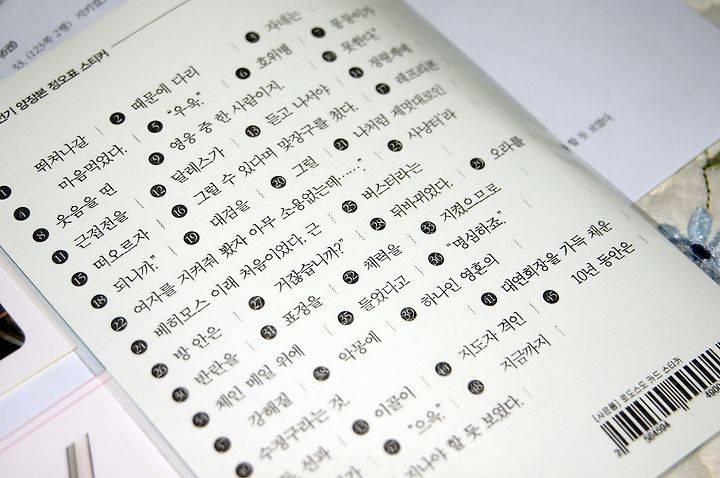 33. (123쪽 2행)
전기 양장본 정오표 스티커
1 뛰쳐나갈 2 때문에 다리 3 자네는
4 마음먹었다. 5 "우욱." 6 호위병 7 몽둥이가
8 웃음을 띤 9 영웅 중 한 사람이지. 10 못한다"
11 근접전을 12 달레스가 13 듣고 나서야 14 정령계에
15 떠오르자 16 그럴 수 있다며 맞장구를 쳤다. 17 레프라콘
18 되니까." 19 대검을 20 그럴 21 나처럼 제멋대로인
22 여자를 지켜줘 봤자 아무 소용없는데……" 23 사냥터'라
24 베히모스 이래 처음이었다. 근 25 버스터라는
26 방 안은 27 거잖습니까?" 28 뒤바뀌었다. 29 오라를
30 반란을 31 표정을 32 체력을 33 지켰으므로
체인 메일 위에 35 들었다고 36 "명심하죠."
강해질 38 악몽에 39 하나인 영혼의
수정구라는 것. 41 대연회장을 가득 채운
선과 이끌이 44 지도자 격인 45 10년 동안은
47 "으윽." 48 지금까지
지나야 할 듯 보였다.
[사은품] 로도스도 카드 스티커
2 504594
할 듯 보였다.